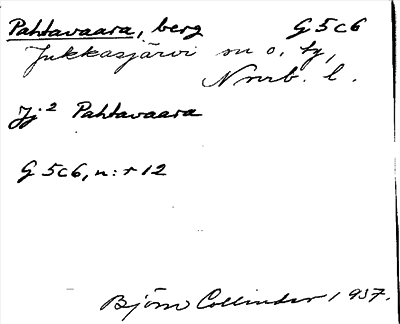 Pahtavaara, berg G5c6
Jukkasjärvi sn o. tg,
Norrb. l.
Jj² Pahtavaara
G5c6, n:r 12
Björn Collinder 1937.